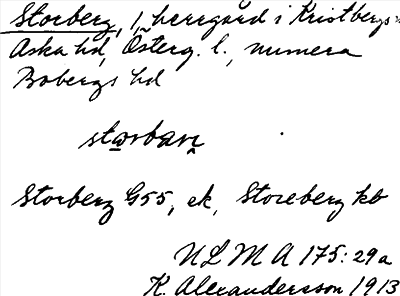 Storberg, 1, herrgård i Kristbergs
Aska hd, Österg. l., numera
Bobergs hd
Storberg G55, ek, Storeberg kb
ULMA 175:29a
K. Alexandersson 1913